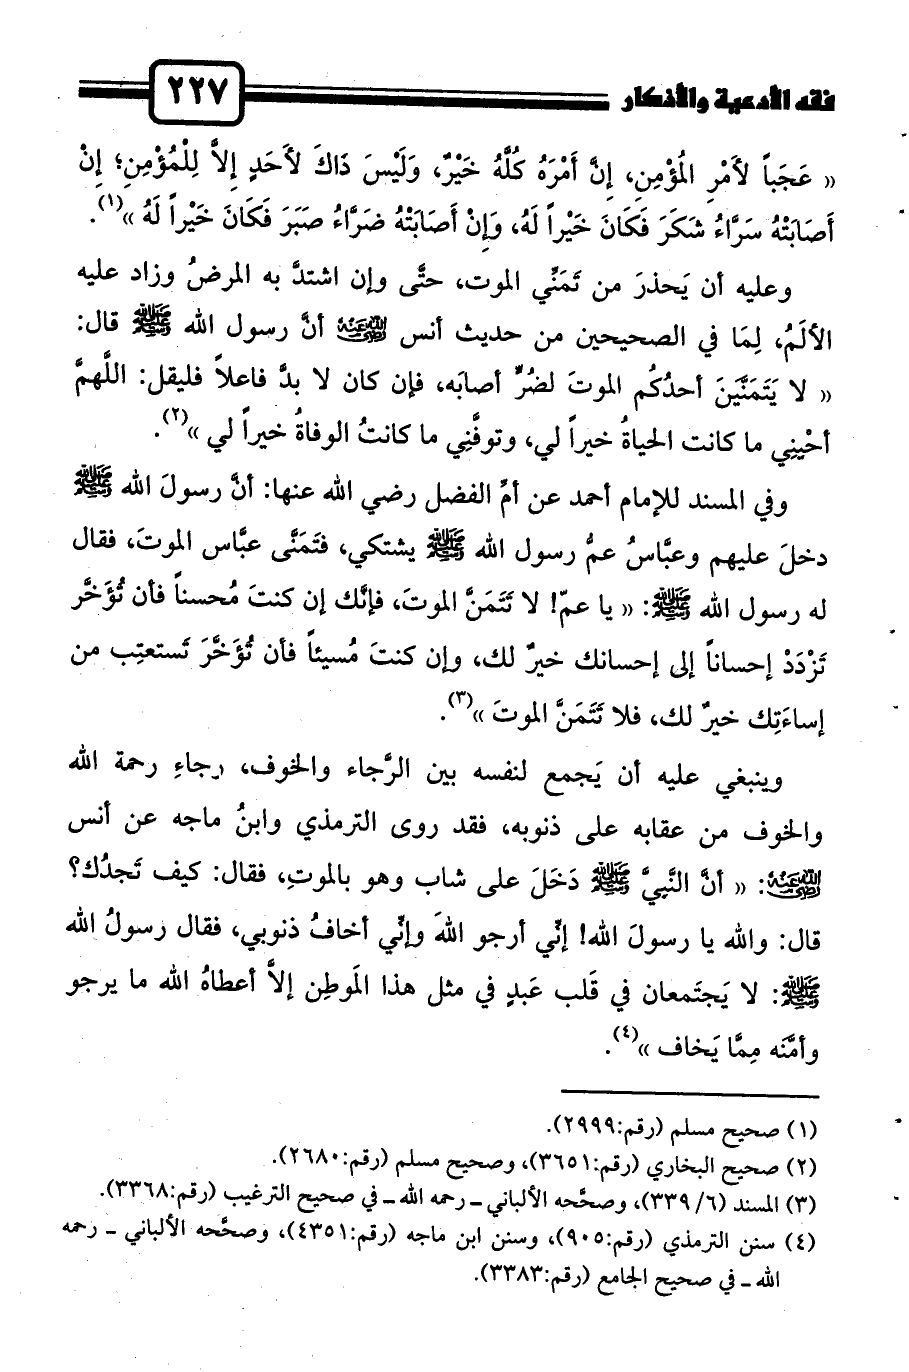 فقه الأدعية والأذكار ٢٢٧
« عَجَباً لأَمْرِ المُؤْمِنِ، إِنَّ أَمْرَهُ كُلَّهُ خَيْرٌ، وَلَيْسَ ذَاكَ لأَحَدٍ إِلاَّ لِلْمُؤْمِنِ؛ إِنْ
أَصَابَتْهُ سَرَّاءُ شَكَرَ فَكَانَ خَيْراً لَهُ، وَإِنْ أَصَابَتْهُ ضَرَّاءُ صَبَرَ فَكَانَ خَيْراً لَهُ »(١).
وعليه أن يَحذرَ من تَمَنِّي الموت، حتَّى وإن اشتدَّ به المرضُ وزاد عليه
الألَمُ، لِمَا في الصحيحين من حديث أنس ﵁ أنَّ رسول الله ﷺ قال:
« لا يَتَمَنَّيَنَ أحدُكُم الموتَ لضُرٍّ أصابَه، فإن كان لا بدَّ فاعلاً فليقل: اللَّهمَّ
أحْيِنِي ما كانت الحياةُ خيراً لي، وتوفَّنِي ما كانتُ الوفاةُ خيراً لي »(٢).
وفي المسند للإمام أحمد عن أمِّ الفضل رضي الله عنها: أنَّ رسولَ الله ﷺ
دخلَ عليهم وعبَّاسُ عمُّ رسول الله ﷺ يشتكي، فتَمَنَّى عبَّاس الموتَ، فقال
له رسول الله ﷺ: « يا عمّ! لا تَتَمَنَّ الموتَ، فإنَّك إن كنتَ مُحسناً فأن تُؤَخَّر
تَزْدَدْ إحساناً إلى إحسانك خيرٌ لك، وإن كنتَ مُسيئاً فأن تُؤَخَّرَ تَستعتِب من
إساءَتِك خيرٌ لك، فلا تَتَمَنَّ الموتَ »(٣).
وينبغي عليه أن يَجمع لنفسه بين الرَّجاء والخوف، رجاءِ رحمة الله
والخوف من عقابه على ذنوبه، فقد روى الترمذي وابنُ ماجه عن أنس
﵁: « أنَّ النَّبِيَّ ﷺ دَخَلَ على شاب وهو بالموتِ، فقال: كيف تَجدُك؟
قال: والله يا رسولَ الله! إنِّي أرجو اللهَ وإنِّي أخافُ ذنوبي، فقال رسولُ الله
ﷺ: لا يَجتَمعان في قَلب عَبدٍ في مثل هذا المَوطِن إلاَّ أعطاهُ الله ما يرجو
وأمَّنَه مِمَّا يَخاف »(٤).
(١) صحيح مسلم (رقم:٢٩٩٩).
(٢) صحيح البخاري (رقم:٣٦٥١)، وصحيح مسلم (رقم:٢٦٨٠).
(٣) المسند (٣٣٩/٦)، وصحَّحه الألباني ـ رحمه الله ـ في صحيح الترغيب (رقم:٣٣٦٨).
(٤) سنن الترمذي (رقم:٩٠٥)، وسنن ابن ماجه (رقم:٤٣٥١)، وصحَّحه الألباني ـ رحمه
الله ـ في صحيح الجامع (رقم:٣٣٨٣).